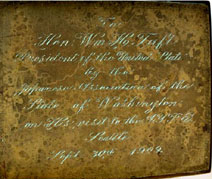 To
Hon. Wm. H. Taft
President of the United States
by the
Japanese Association of the
State of Washington
on His visit to the A.Y.P.E.
Seattle
Sept. 30th 1909.